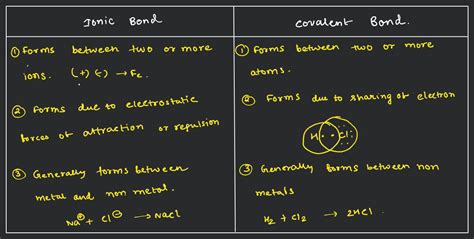 Ionic Bond
① Forms between two or more
ions. (+) (-) → Fe
② Forms due to electrostatic
forces of attraction or repulsion
③ Generally forms between
metal and non metal.
Na⊕ + Cl⊖ → NaCl
Covalent Bond.
① Forms between two or more
atoms.
② Forms due to sharing of electron
H Cl
③ Generally forms between non
metals
H₂ + Cl₂ → 2HCl